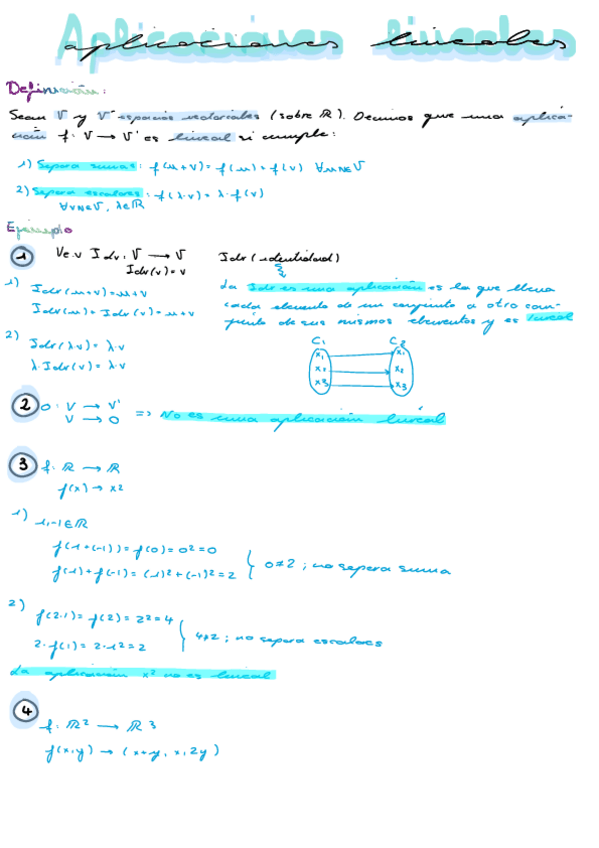 Aplicaciones lineales
Definición:
Sean V y V' espacios vectoriales (sobre ℝ). Decimos que una aplica-
ción f: V → V' es lineal si cumple:
1) Separa sumas: f(u+v) = f(u) + f(v) ∀u,v∈V
2) Separa escalares: f(λ·v) = λ·f(v)
∀v∈V, λ∈ℝ
Ejemplo
1 V e.v Idv: V → V Idv (identidad)
Idv(v) = v
1) Idv(u+v) = u+v
Idv(u) + Idv(v) = u+v
La Idv es una aplicación es la que lleva
cada elemento de un conjunto a otro con-
junto de sus mismos elementos y es lineal
2) Idv(λv) = λ·v
λ·Idv(v) = λ·v
C1 C2
x1 x1
x2 x2
x3 x3
2 0: V → V'
V → 0
=> No es una aplicación lineal
3 f: ℝ → ℝ
f(x) → x2
1) 1,-1∈ℝ
f(1+(-1)) = f(0) = 0² = 0
f(1) + f(-1) = (1)² + (-1)² = 2
0≠2 ; no separa suma
2) f(2·1) = f(2) = 2² = 4
2·f(1) = 2·1² = 2
4≠2 ; no separa escalares
La aplicación x² no es lineal
4
f: ℝ² → ℝ3
f(x,y) → (x+y, x, 2y)